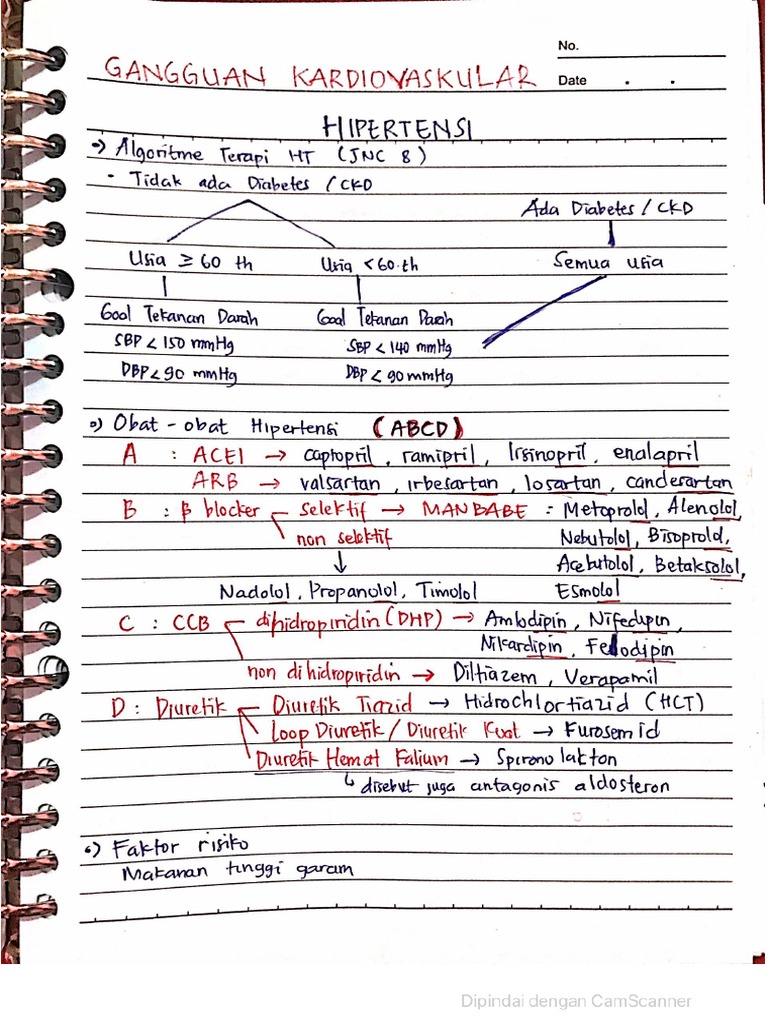 No.
GANGGUAN KARDIOVASKULAR
Date . .
HIPERTENSI
Algoritme Terapi HT (JNC 8)
- Tidak ada Diabetes / CKD
Ada Diabetes / CKD
Usia ≥ 60 th Usia < 60 th Semua usia
Goal Tekanan Darah Goal Tekanan Darah
SBP < 150 mmHg SBP < 140 mmHg
DBP < 90 mmHg DBP < 90 mmHg
Obat - obat Hipertensi (ABCD)
A : ACEI → captopril, ramipril, lisinopril, enalapril
ARB → valsartan, irbesartan, losartan, candesartan
B : β blocker selektif → MANBABE : Metoprolol, Atenolol,
non selektif Nebutolol, Bisoprold,
↓ Acebutolol, Betaksolol,
Nadolol, Propanolol, Timolol Esmolol
C : CCB dihidropiridin (DHP) → Amlodipin, Nifedipin,
Nikardipin, Felodipin
non dihidropiridin → Diltiazem, Verapamil
D : Diuretik Diuretik Tiazid → Hidrochlortiazid (HCT)
Loop Diuretik / Diuretik Kuat → Furosemid
Diuretik Hemat Kalium → Spironolakton
↳ disebut juga antagonis aldosteron
Faktor risiko
Makanan tinggi garam
Dipindai dengan CamScanner